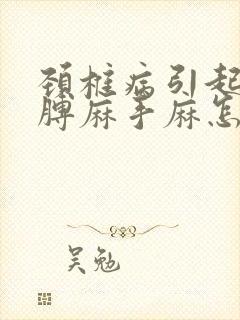 颈椎病引起
脾麻手麻怎
吴勉